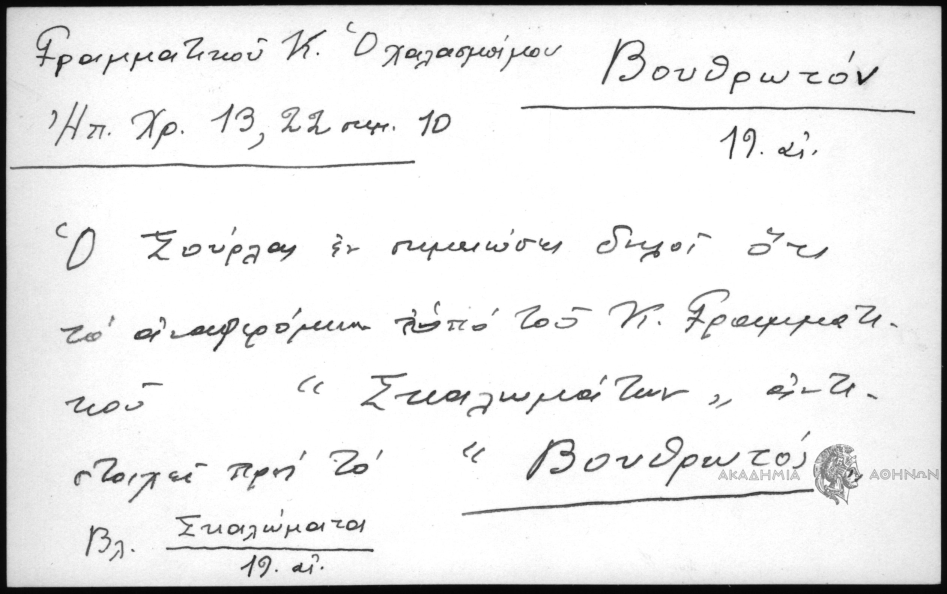 Γραμματικοῦ Κ. Ὁ χαλασμὸς μου
Βουθρωτόν
Ἠπ. Χρ. 13, 22 σημ. 10
19. αἰ.
Ὁ Σούρλας ἐν σημειώσει δηλοῖ ὅτι
τὸ ἀναφερόμενον ὑπὸ τοῦ Κ. Γραμματι-
κοῦ “ Σκαλωμάτων „ ἀντι-
στοιχεῖ πρὸς τὸ “ Βουθρωτόν „
Βλ. Σκαλώματα
19. αἰ.
ΑΚΑΔΗΜΙΑ ΑΘΗΝΩΝ